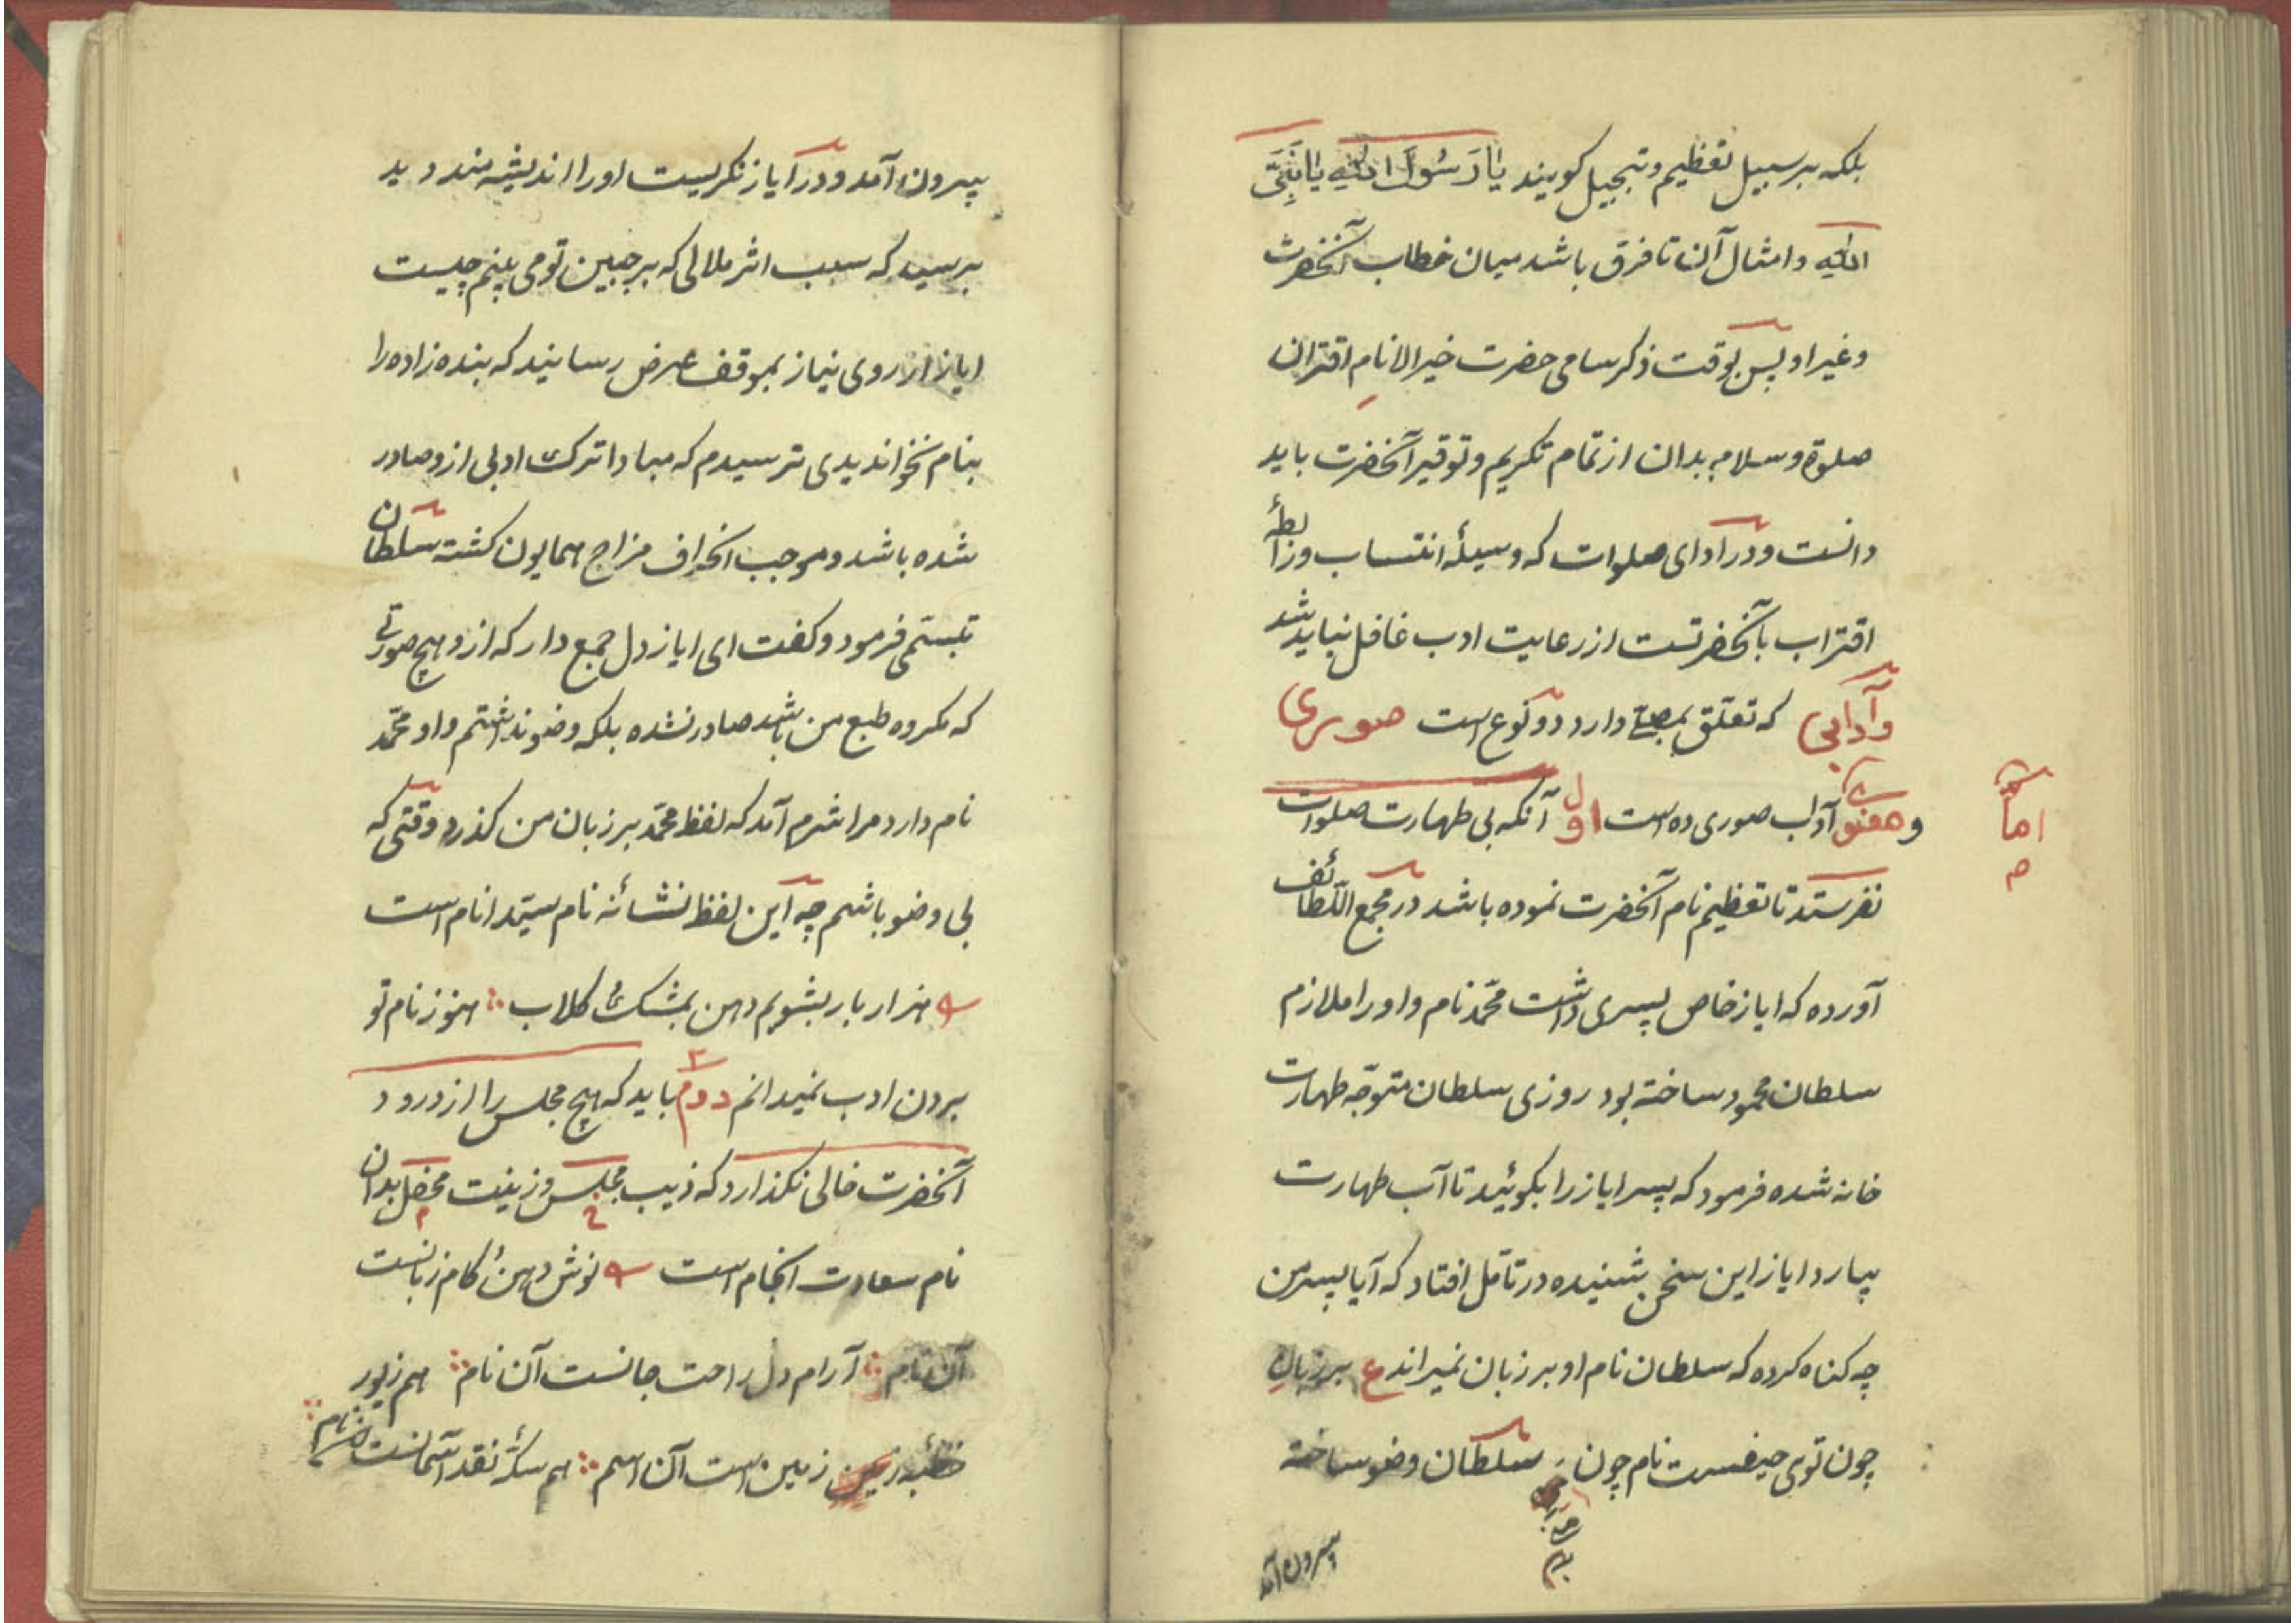 بلکه بر سبیل تعظیم و تبجیل کویند یَا رَسُولَ اللهِ یَا نَبِیَّ
اللهِ و امثال آن تا فرق باشد میان خطاب آنحضرت
و غیر او پس بوقت ذکر سامی حضرت خیر الانام اقتران
صلوة و سلام بدان از تمام تکریم و توقیر آنحضرت باید
دانست و در ادای صلوات که وسیلۀ انتساب و رابطۀ
اقتراب بآنحضرتست از رعایت ادب غافل نباید شد
و آدابی که تعلّق بمصلّی دارد دو نوع است صوری
و معنوی آداب صوری ده است اول آنکه بی طهارت صلوات
امّا
نفرستد تا تعظیم نام آنحضرت نموده باشد در مجمع اللّطائف
آورده که ایاز خاص پسری داشت محمّد نام و او را ملازم
سلطان محمود ساخته بود روزی سلطان متوجّه طهارت
خانه شده فرمود که پسر ایاز را بکوئید تا آب طهارت
بیارد ایاز این سخن شنیده در تامّل افتاد که آیا پسر من
چه کناه کرده که سلطان نام او بر زبان نمیراند ع بر زبانِ
چون توی حیفست نام چون سلطان وضو ساخته
بیرون آمد
بیرون آمد و در ایاز نکریست او را اندیشه مند دید
پرسید که سبب اثر ملالی که بر جبین تو می بینم چیست
ایاز از روی نیاز بموقف عرض رسانید که بنده زاده را
بنام نخواندیدی ترسیدم که مبادا ترک ادبی ازو صادر
شده باشد و موجب انحراف مزاج همایون کشته سلطان
تبسّمی فرمود و کفت ای ایاز دل جمع دار که ازو هیچ صورتی
که مکروه طبع من باشد صادر نشده بلکه وضو نداشتم و او محمّد
نام دارد مرا شرم آمد که لفظ محمّد بر زبان من کذرد وقتی که
بی وضو باشم چه این لفظ نشانۀ نام سیّد انام است
هزار بار بشویم دهن بمشک و کلاب هنوز نام تو
بردن ادب نمیدانم دوم باید که هیچ مجلس را از درود
آنحضرت خالی نکذارد که زیب مجلس و زینت محفل بدان
نام سعادت انجام است نوش دهن و کام زبانست
آن نام آرام دل راحت جانست آن نام هم زیور
خطبۀ زمین است آن اسم هم سکّۀ نقد آسمانست آن نام